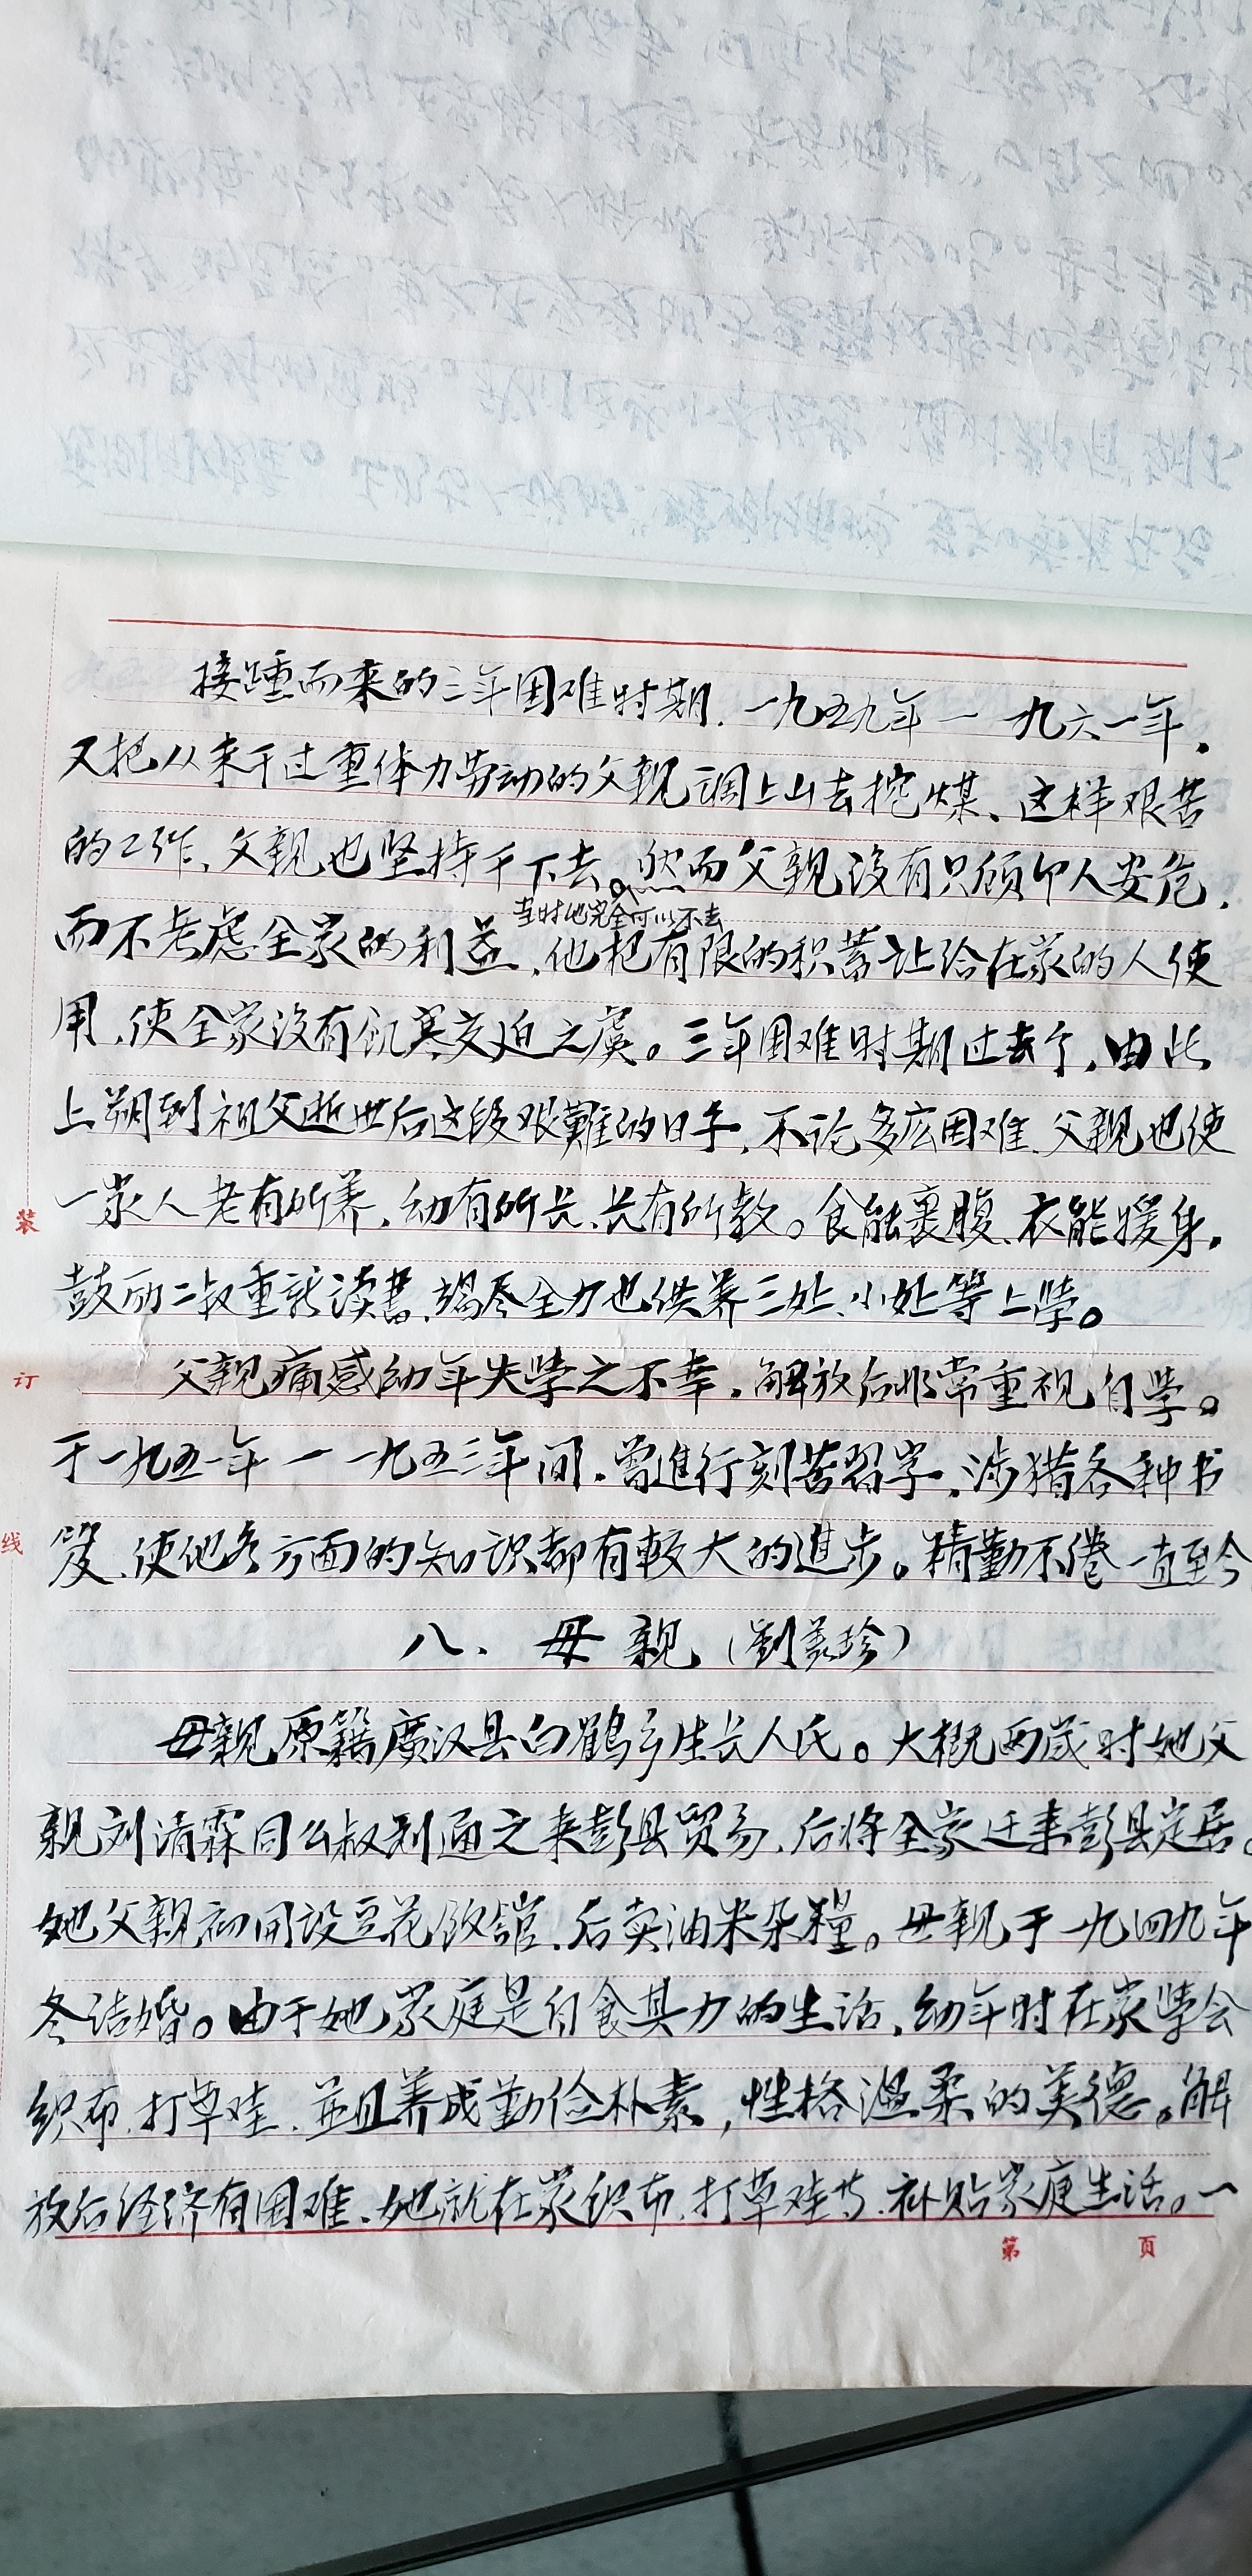 接踵而来的三年困难时期.一九五九年—一九六一年.
又把从来干过重体力劳动的父亲调上山去挖煤、这样艰苦
的工作、父亲也坚持干下去。然而父亲没有只顾个人安危.
当时他完全可以不去
而不考虑全家的利益、他把有限的积蓄让给在家的人使
用、使全家没有饥寒交迫之虞。三年困难时期过去了、由此
上朔到祖父逝世后这段艰難的日子、不论多么困难、父亲也使
一家人老有所养、幼有所长、长有所教。食能裹腹、衣能暖身.
鼓励二叔重新读書、竭尽全力也供养三处、小处等上學。
装
父亲痛感幼年失學之不幸.解放后非常重视自學。
订
于一九五一年—一九五三年间.曾進行刻苦習字、涉猎各种书
线
笈、使他多方面的知识都有较大的進步。精勤不倦一直至今
八、母亲(劉美珍)
母亲原籍廣汉县白鶴乡生长人氏。大概两歲时她父
親刘清霖同么叔刘通之来彭县贸易、后将全家迁来彭县定居。
她父亲初開设豆花饭館、后卖油米杂糧。母亲于一九四九年
冬结婚。由于她家庭是自食其力的生活、幼年时在家學会
织布.打草鞋.並且养成勤俭朴素,性格温柔的美德。解
放后经济有困难、她就在家织布.打草鞋等.补贴家庭生活。一
第 頁